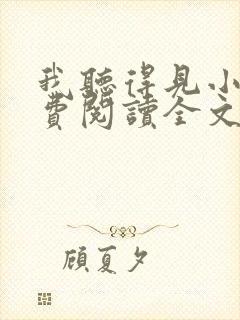 我聽得見小
費閱讀全文
顧夏夕